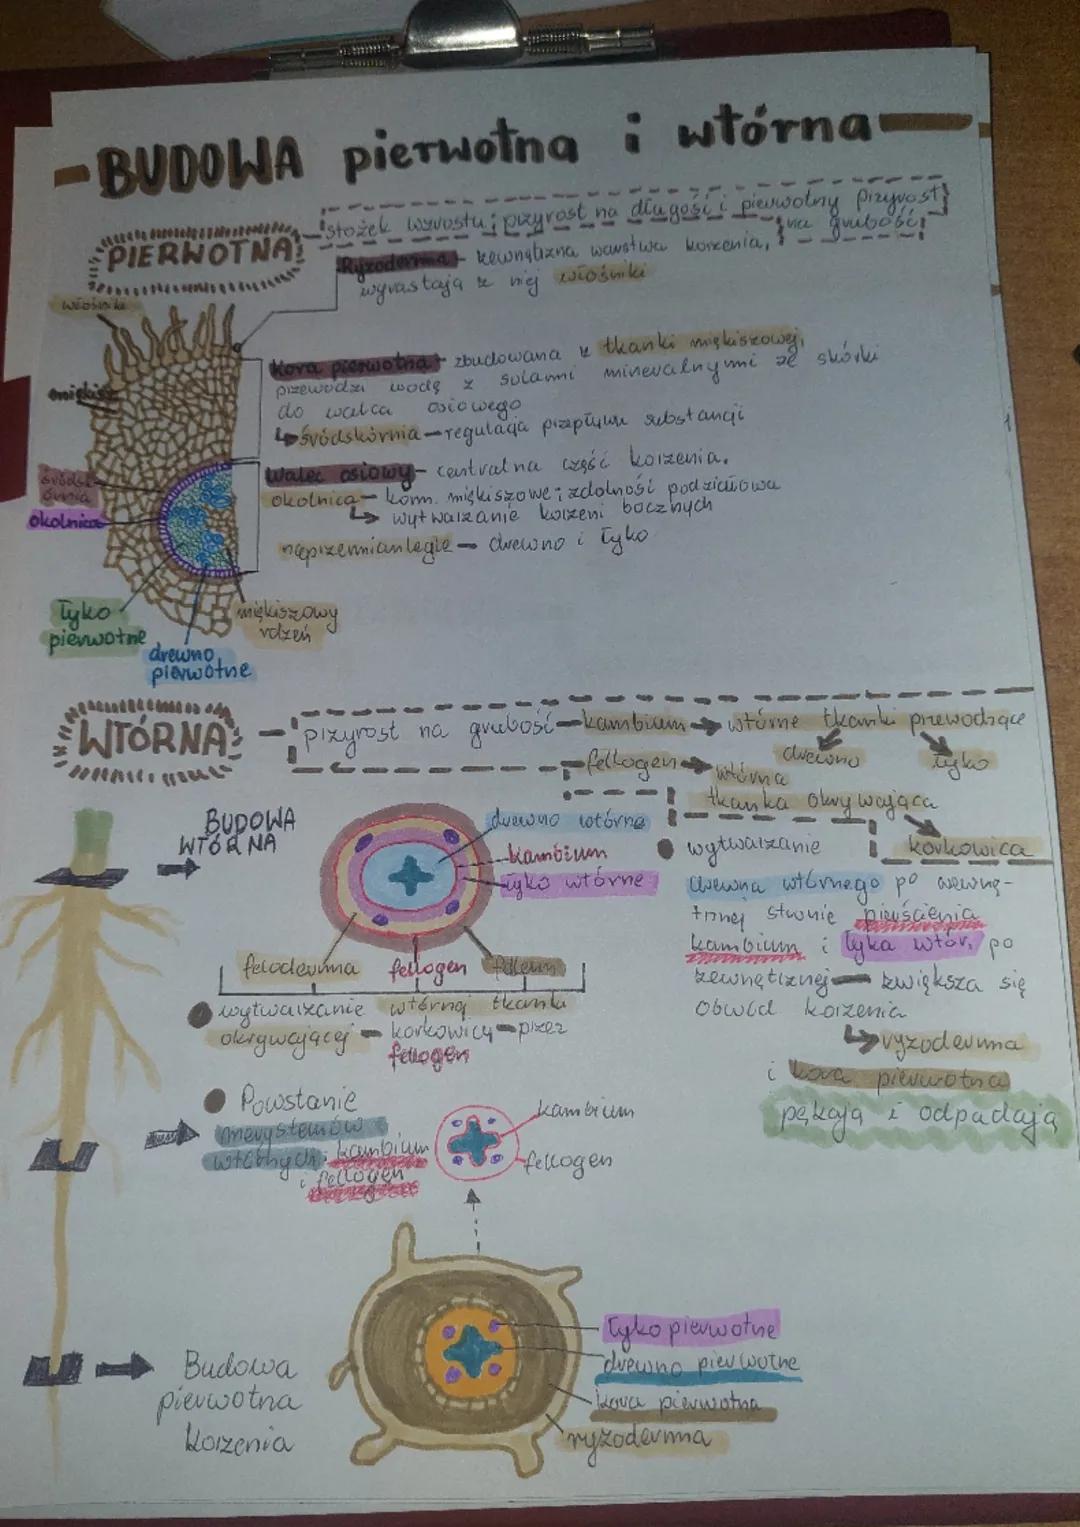 BUDOWA pierwotna i wtórna
PIERWOTNA
stożek wzrostu; przyrost na długość i pierwotny przyrost
na grubość
Ryzoderma - zewnętrzna warstwa korzenia,
wyrastają z niej włośniki
włośniki
Kora pierwotna - zbudowana z tkanki miękiszowej,
przewodzi wodę z solami mineralnymi ze skórki
do walca osiowego
↳ śródskórnia - regulacja przepływu substancji
miękisz
Walec osiowy - centralna część korzenia.
okolnica - kom. miękiszowe; zdolność podziałowa
↳ wytwarzanie korzeni bocznych
naprzemianległe - drewno i łyko
śródsk-
órnia
okolnica
łyko
pierwotne
drewno
pierwotne
miękiszowy
rdzeń
WTÓRNA
przyrost na grubość - kambium → wtórne tkanki przewodzące
drewno łyko
fellogen → wtórna
tkanka okrywająca
korkowica
BUDOWA
WTÓRNA
drewno wtórne
kambium
łyko wtórne
feloderma fellogen fellem
wytwarzanie wtórnej tkanki
okrywającej - korkowicy - przez
fellogen
wytwarzanie
drewna wtórnego po wewnę-
trznej stronie pierścienia
kambium i łyka wtór. po
zewnętrznej - zwiększa się
obwód korzenia
↳ ryzoderma
i kora pierwotna
pękają i odpadają
Powstanie
merystemów
wtórnych: kambium
i fellogen
kambium
fellogen
Budowa
pierwotna
korzenia
łyko pierwotne
drewno pierwotne
kora pierwotna
ryzoderma